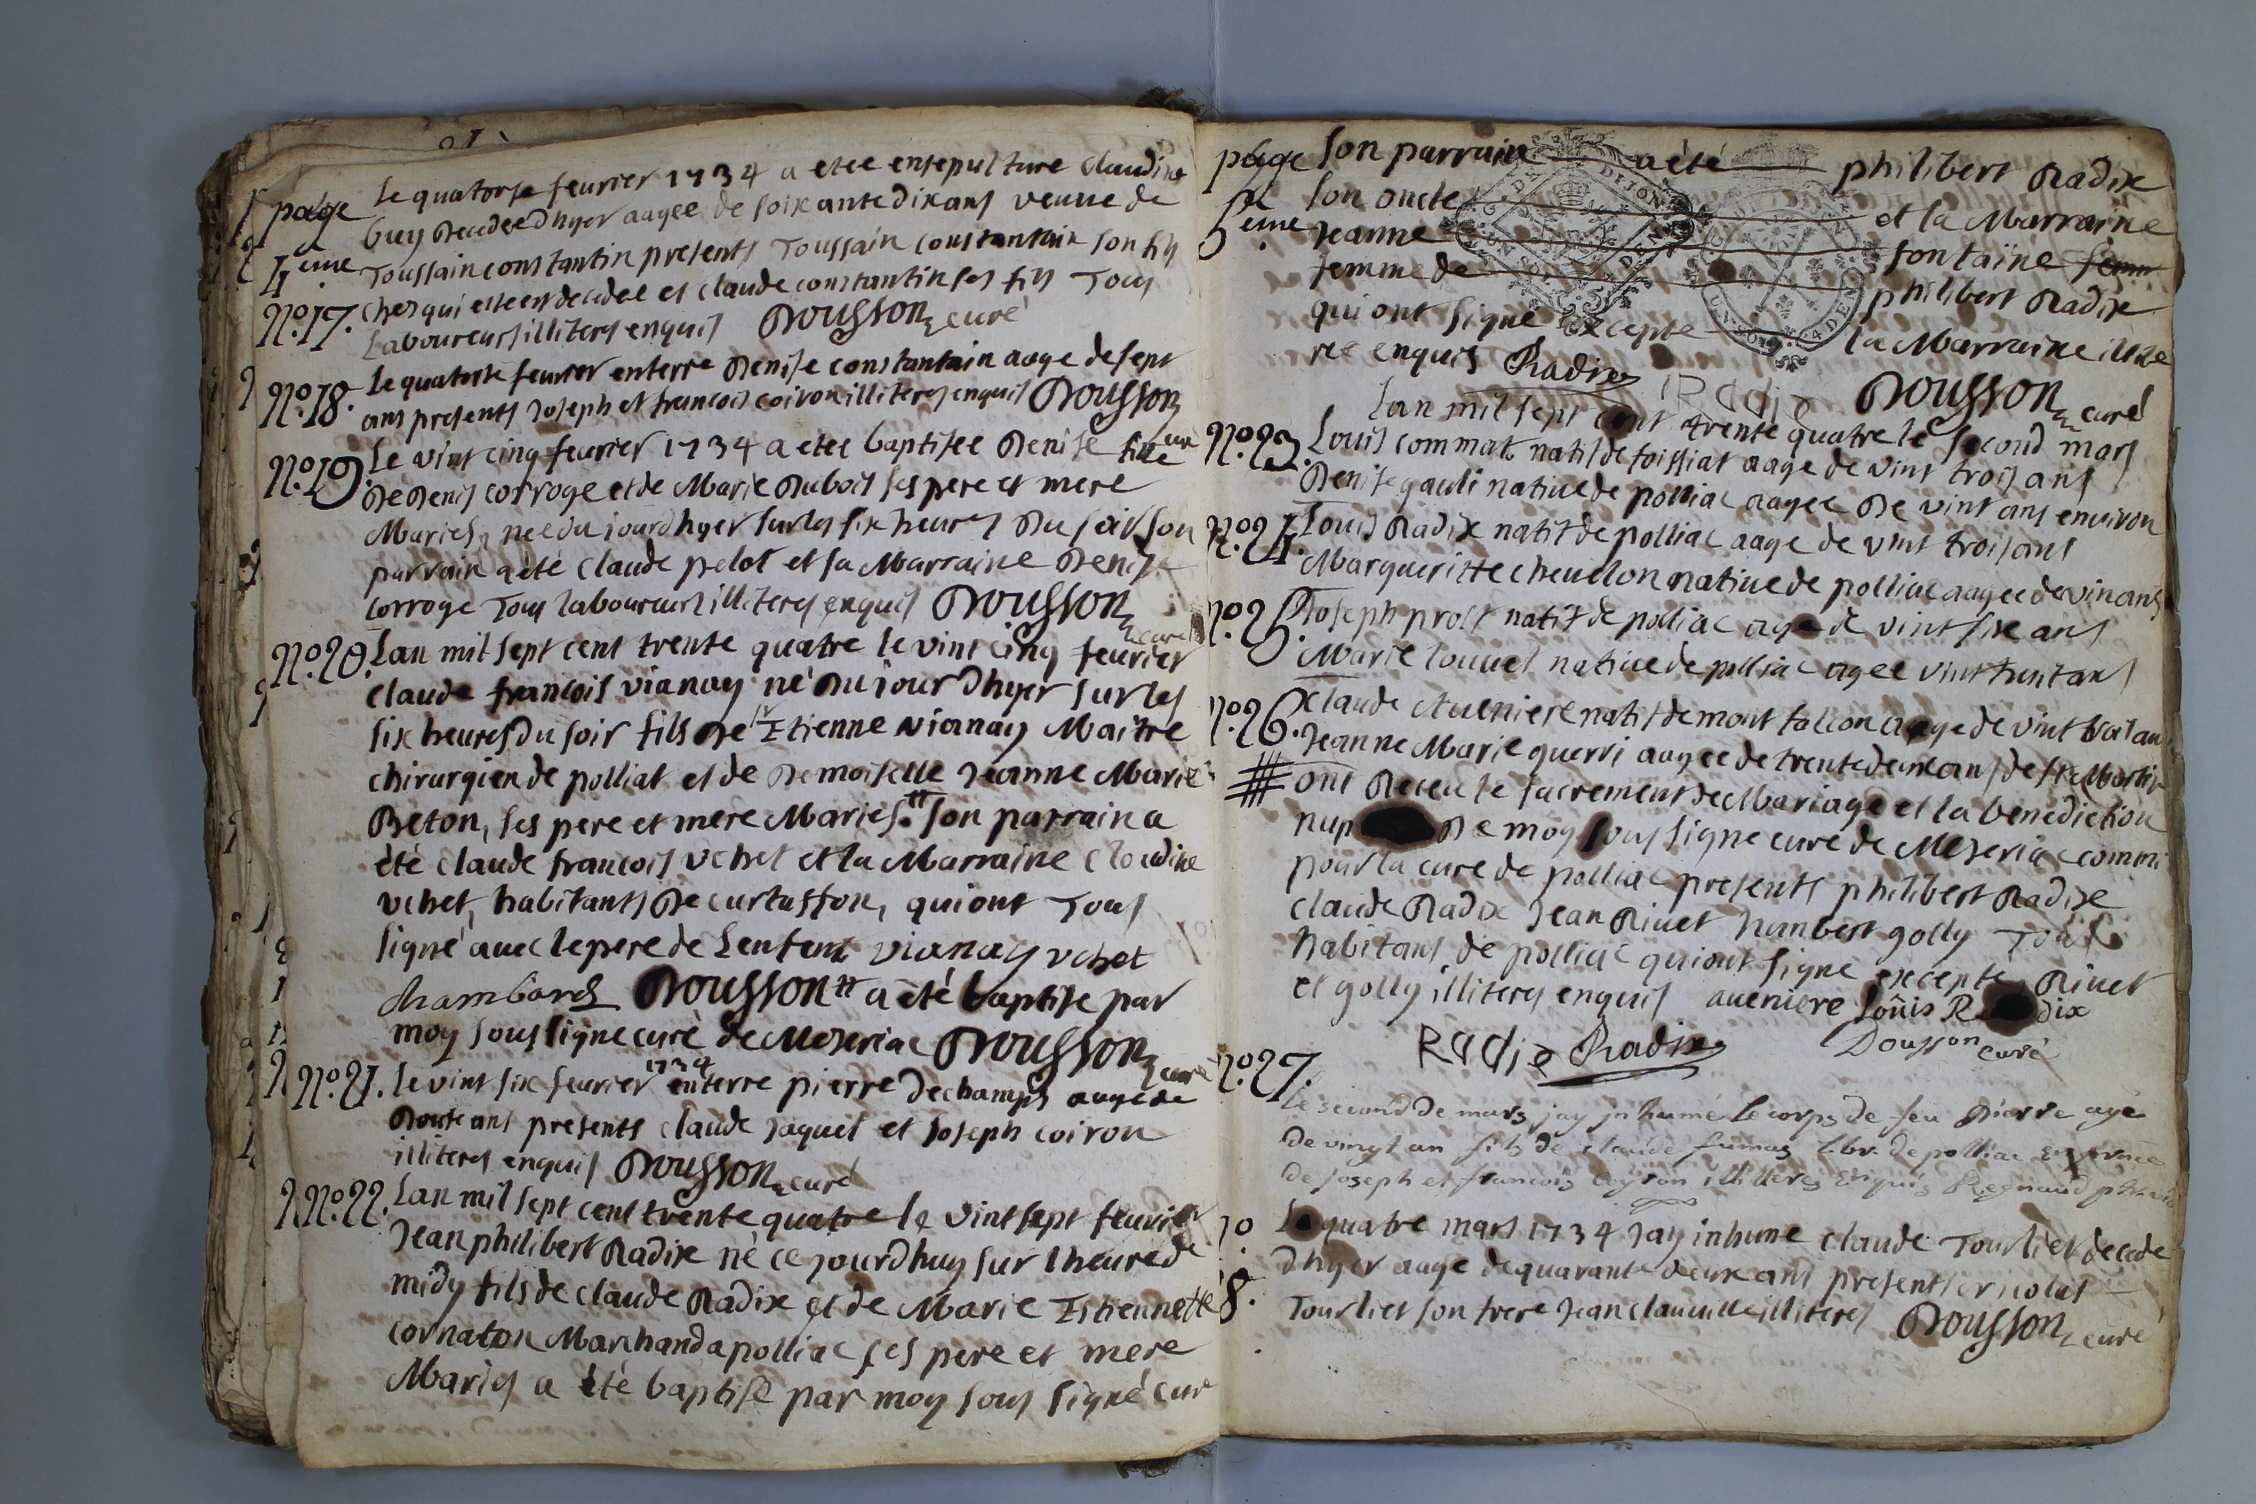 page
4eme
N.o17.
Le quatorse feurier 1734 a etee ensepulture claudine
buy decedee dhyer aagee de soixante dix ans veuue de
Toussain constantin presents Toussain constantain son fils
chez qui elle est decedee et claude constantin ses fils Tous
Laboureurs illiteres enquis Dousson curé
N.o18. Le quatorse feurier enterre Denise constantain aage de sept
ans presents Joseph et francois coiron illiteres enquis Dousson
curé
N.o19. Le vint cinq feurier 1734 a etee baptisee Denise fille
De Denis corroge et de Marie Dubois ses pere et mere
Maries, nee du jourdhyer sur les six heures Du soir son
parrain a été claude pelot et sa Marraine Denise
corroge Tous laboureurs illiteres enquis Dousson
curé
N.o20. Lan mil sept cent trente quatre le vint cinq feurier
claude francois vianay né Du jour Dhyer sur les
six heures Du soir fils De sr Etienne vianay Maitre
chirurgien de polliat et de Demoiselle Jeanne Marie
Beton, ses pere et mere Maries. # son parrain a
été claude francois vchet et la Marraine claudine
vchet, habitants De curtaffon, qui ont Tous
signé auec le pere de Lenfent vianay vchet
chambard Dousson # a été baptise par
moy sous signe curé de Mezeriac Dousson curé
N.o21. Le vint six feurier 1734 enterre pierre Dechamps aage de
Doute ans presents claude jaquet et Joseph coiron
illiteres enquis Dousson curé
N.o22. Lan mil sept cent trente quatre le vint sept feurier
Jean philibert Radix né ce jourdhuy sur lheure de
midy fils de claude Radix et de Marie Estiennette
cornaton Marchand a polliac ses pere et mere
Maries a été baptise par moy sous signé cur
page
5eme
son parrain a été philibert Radix
son oncle et la Marraine
Jeanne fontaine
femme de philibert Radix
qui ont signe excepte la Marraine illite
ree enquis Radix Radix Dousson curé
Lan mil sept cent trente quatre le second mars
N.o23. Louis commat natif de foissiat aage de vint trois ans
Denise gauli natiue de polliac aagee De vint ans enuiron
N.o24. Louis Radix natif de polliac aage de vint trois ans
Margueritte cheuelon natiue de polliac aagee de vin ans
N.o25. Joseph prost natif de polliac age de vint six ans
Marie louuet natiue de polliac agee vint huit ans
N.o26. claude Aueniere natif de mont falcon aage de vint trois ans
Jeanne Marie guerri aagee de trente deux ans de st Martin
# ont Receu le sacrement de Mariage et la benediction
nup De moy sous signe curé de Mezeriac commi
pour la cure de polliac presents philibert Radix
claude Radix Jean Riuet humbert golly Tous
habitans de polliac qui ont signe excepte Riuet
et golly illiteres enquis aueniere Loüis Radix
Radix Radix Dousson curé
N.o27.
Le second de mars jay inhumé Le corps de feu pierre agé
De vingt an fils de claude fumas Lbr. de polliac En presence
de Joseph et francois coyron illitteres Enquis Regnaud
N.o
28.
Le quatre mars 1734 Jay inhume claude Tourlier decede
Dhyer aage de quarante deux ans presents nicolas
Tourlier son frere Jean illiteres Dousson curé